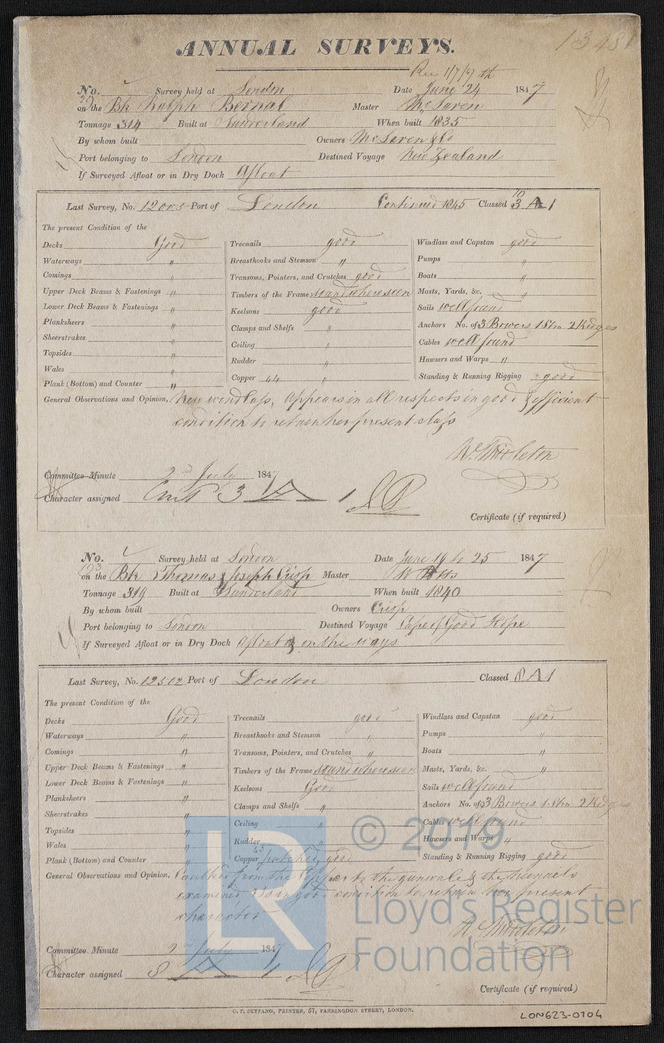 ANNUAL SURVEYS.
Rec 1/7/47
No. Survey held at London Date June 24 1847
on the Bk Ralph Bernal Master McLaren
Tonnage 314 Built at Sunderland When built 1835
By whom built Owners McLaren & Co
Port belonging to London Destined Voyage New Zealand
If Surveyed Afloat or in Dry Dock Afloat
Last Survey, No. Port of London Continued 1845 Classed 3 A 1
The present Condition of the
Decks Good Treenails good Windlass and Capstan good
Waterways " Breasthooks and Stemson " Pumps "
Comings " Transoms, Pointers, and Crutches good Boats "
Upper Deck Beams & Fastenings " Timbers of the Frame sound where seen Masts, Yards, &c. "
Lower Deck Beams & Fastenings " Keelsons good Sails well found
Planksheers " Clamps and Shelfs " Anchors No. of 3 Bowers 1 Stm 2 Kedges
Sheerstrakes " Ceiling " Cables well found
Topsides " Rudder " Hawsers and Warps "
Wales " Copper 44 " Standing & Running Rigging good
Plank (Bottom) and Counter "
General Observations and Opinion, New windlass, Appears in all respects in good & efficient
condition to retain her present class
Committee Minute 2nd July 1847
Character assigned Cont 3 A 1
Certificate (if required)
No. Survey held at London Date June 19 to 25 1847
on the Bk Thomas & Joseph Crisp Master
Tonnage 319 Built at Sunderland When built 1840
By whom built Owners Crisp
Port belonging to London Destined Voyage Cape of Good Hope
If Surveyed Afloat or in Dry Dock Afloat & on the ways
Last Survey, No. 12502 Port of London Classed 8 A 1
The present Condition of the
Decks Good Treenails good Windlass and Capstan good
Waterways " Breasthooks and Stemson " Pumps "
Comings " Transoms, Pointers, and Crutches " Boats "
Upper Deck Beams & Fastenings " Timbers of the Frame sound where seen Masts, Yards, &c. "
Lower Deck Beams & Fastenings " Keelsons Good Sails well found
Planksheers " Clamps and Shelfs " Anchors No. of 3 Bowers 1 Stm 2 Kedges
Sheerstrakes " Ceiling " Cables well found
Topsides " Rudder " Hawsers and Warps "
Wales " Copper patched good Standing & Running Rigging good
Plank (Bottom) and Counter "
General Observations and Opinion, Caulked from the Copper to the gunwale & the treenails
examined is in good condition to retain her present
character
Committee Minute 2nd July 1847
Character assigned 8 A 1
Certificate (if required)
PRINTER, 57, FARRINGDON STREET, LONDON.
LON623-0104
LR © 2019
Lloyd's Register
Foundation